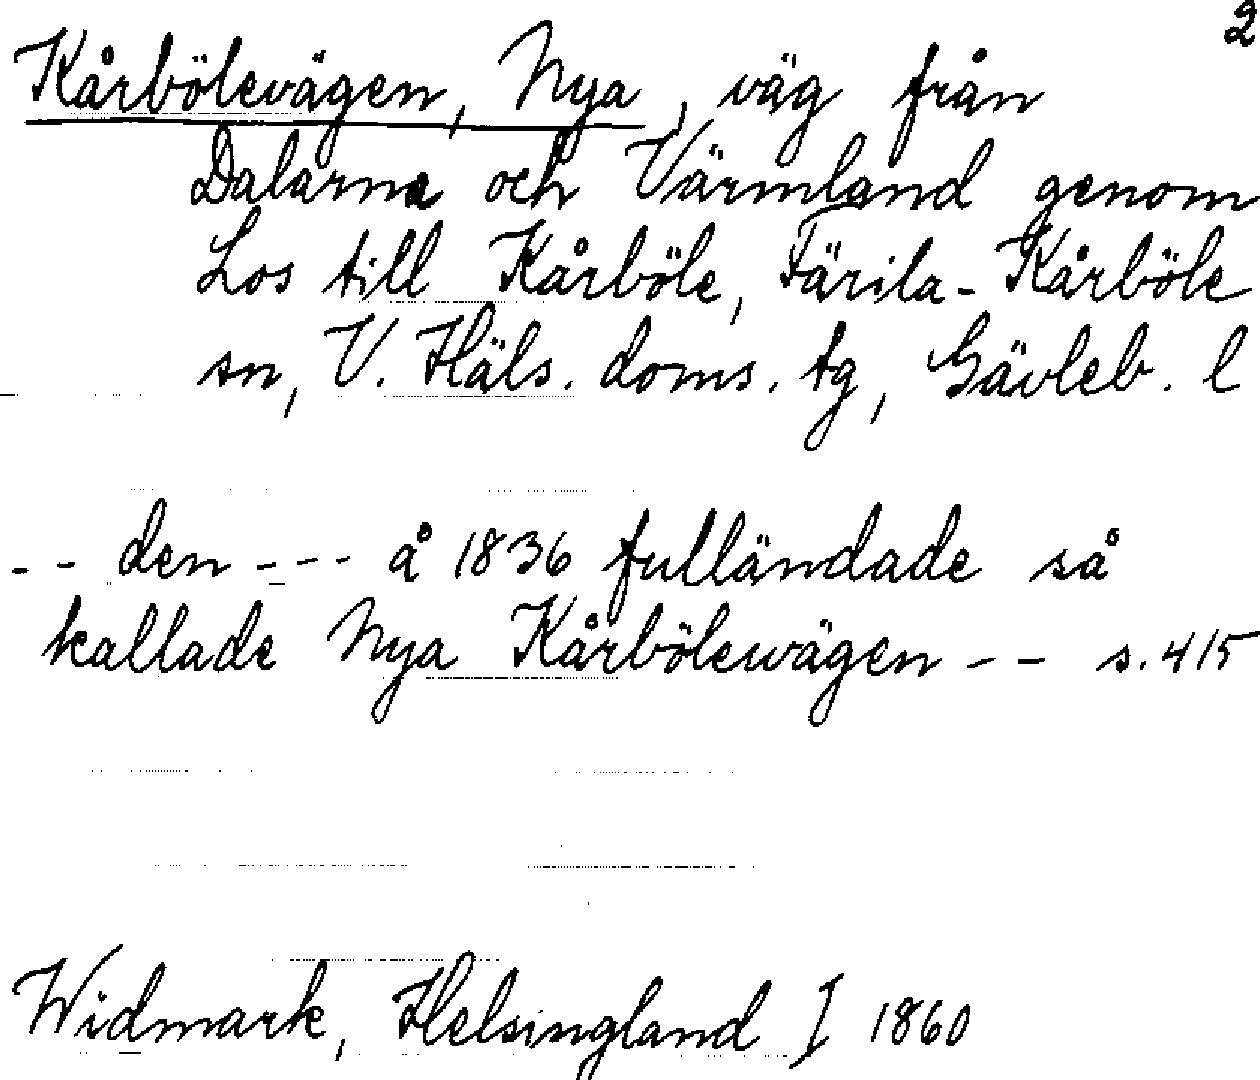 2
Kårbölevägen, Nya, väg från
Dalarna och Värmland genom
Los till Kårböle, Färila-Kårböle
sn, V. Häls. doms. tg, Gävleb. l
-- den --- å 1836 fulländade så
kallade Nya Kårbölewägen -- s. 415
Widmark, Helsingland I 1860